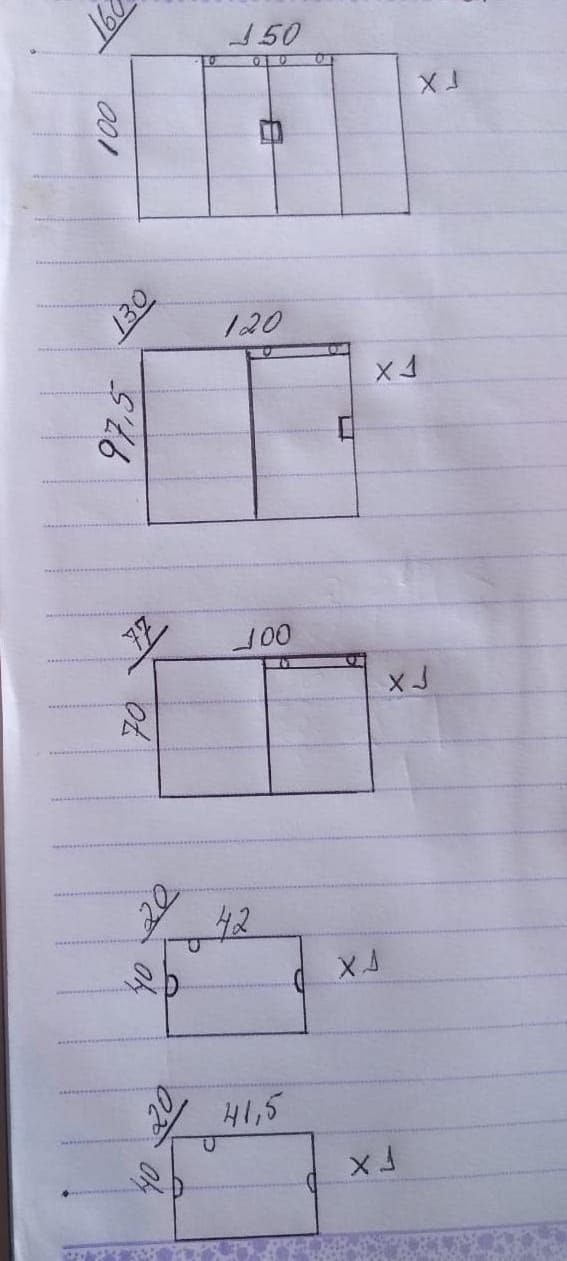 160
150
100
x1
130
120
97,5
x1
77
100
70
x1
20
42
40
x1
20
41,5
40
x1